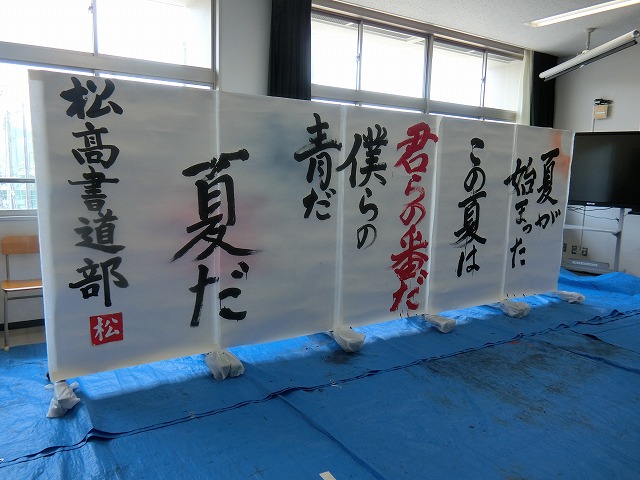 夏が
始まった
この夏は
君らの番だ
僕らの
青だ
夏だ
松高書道部
松